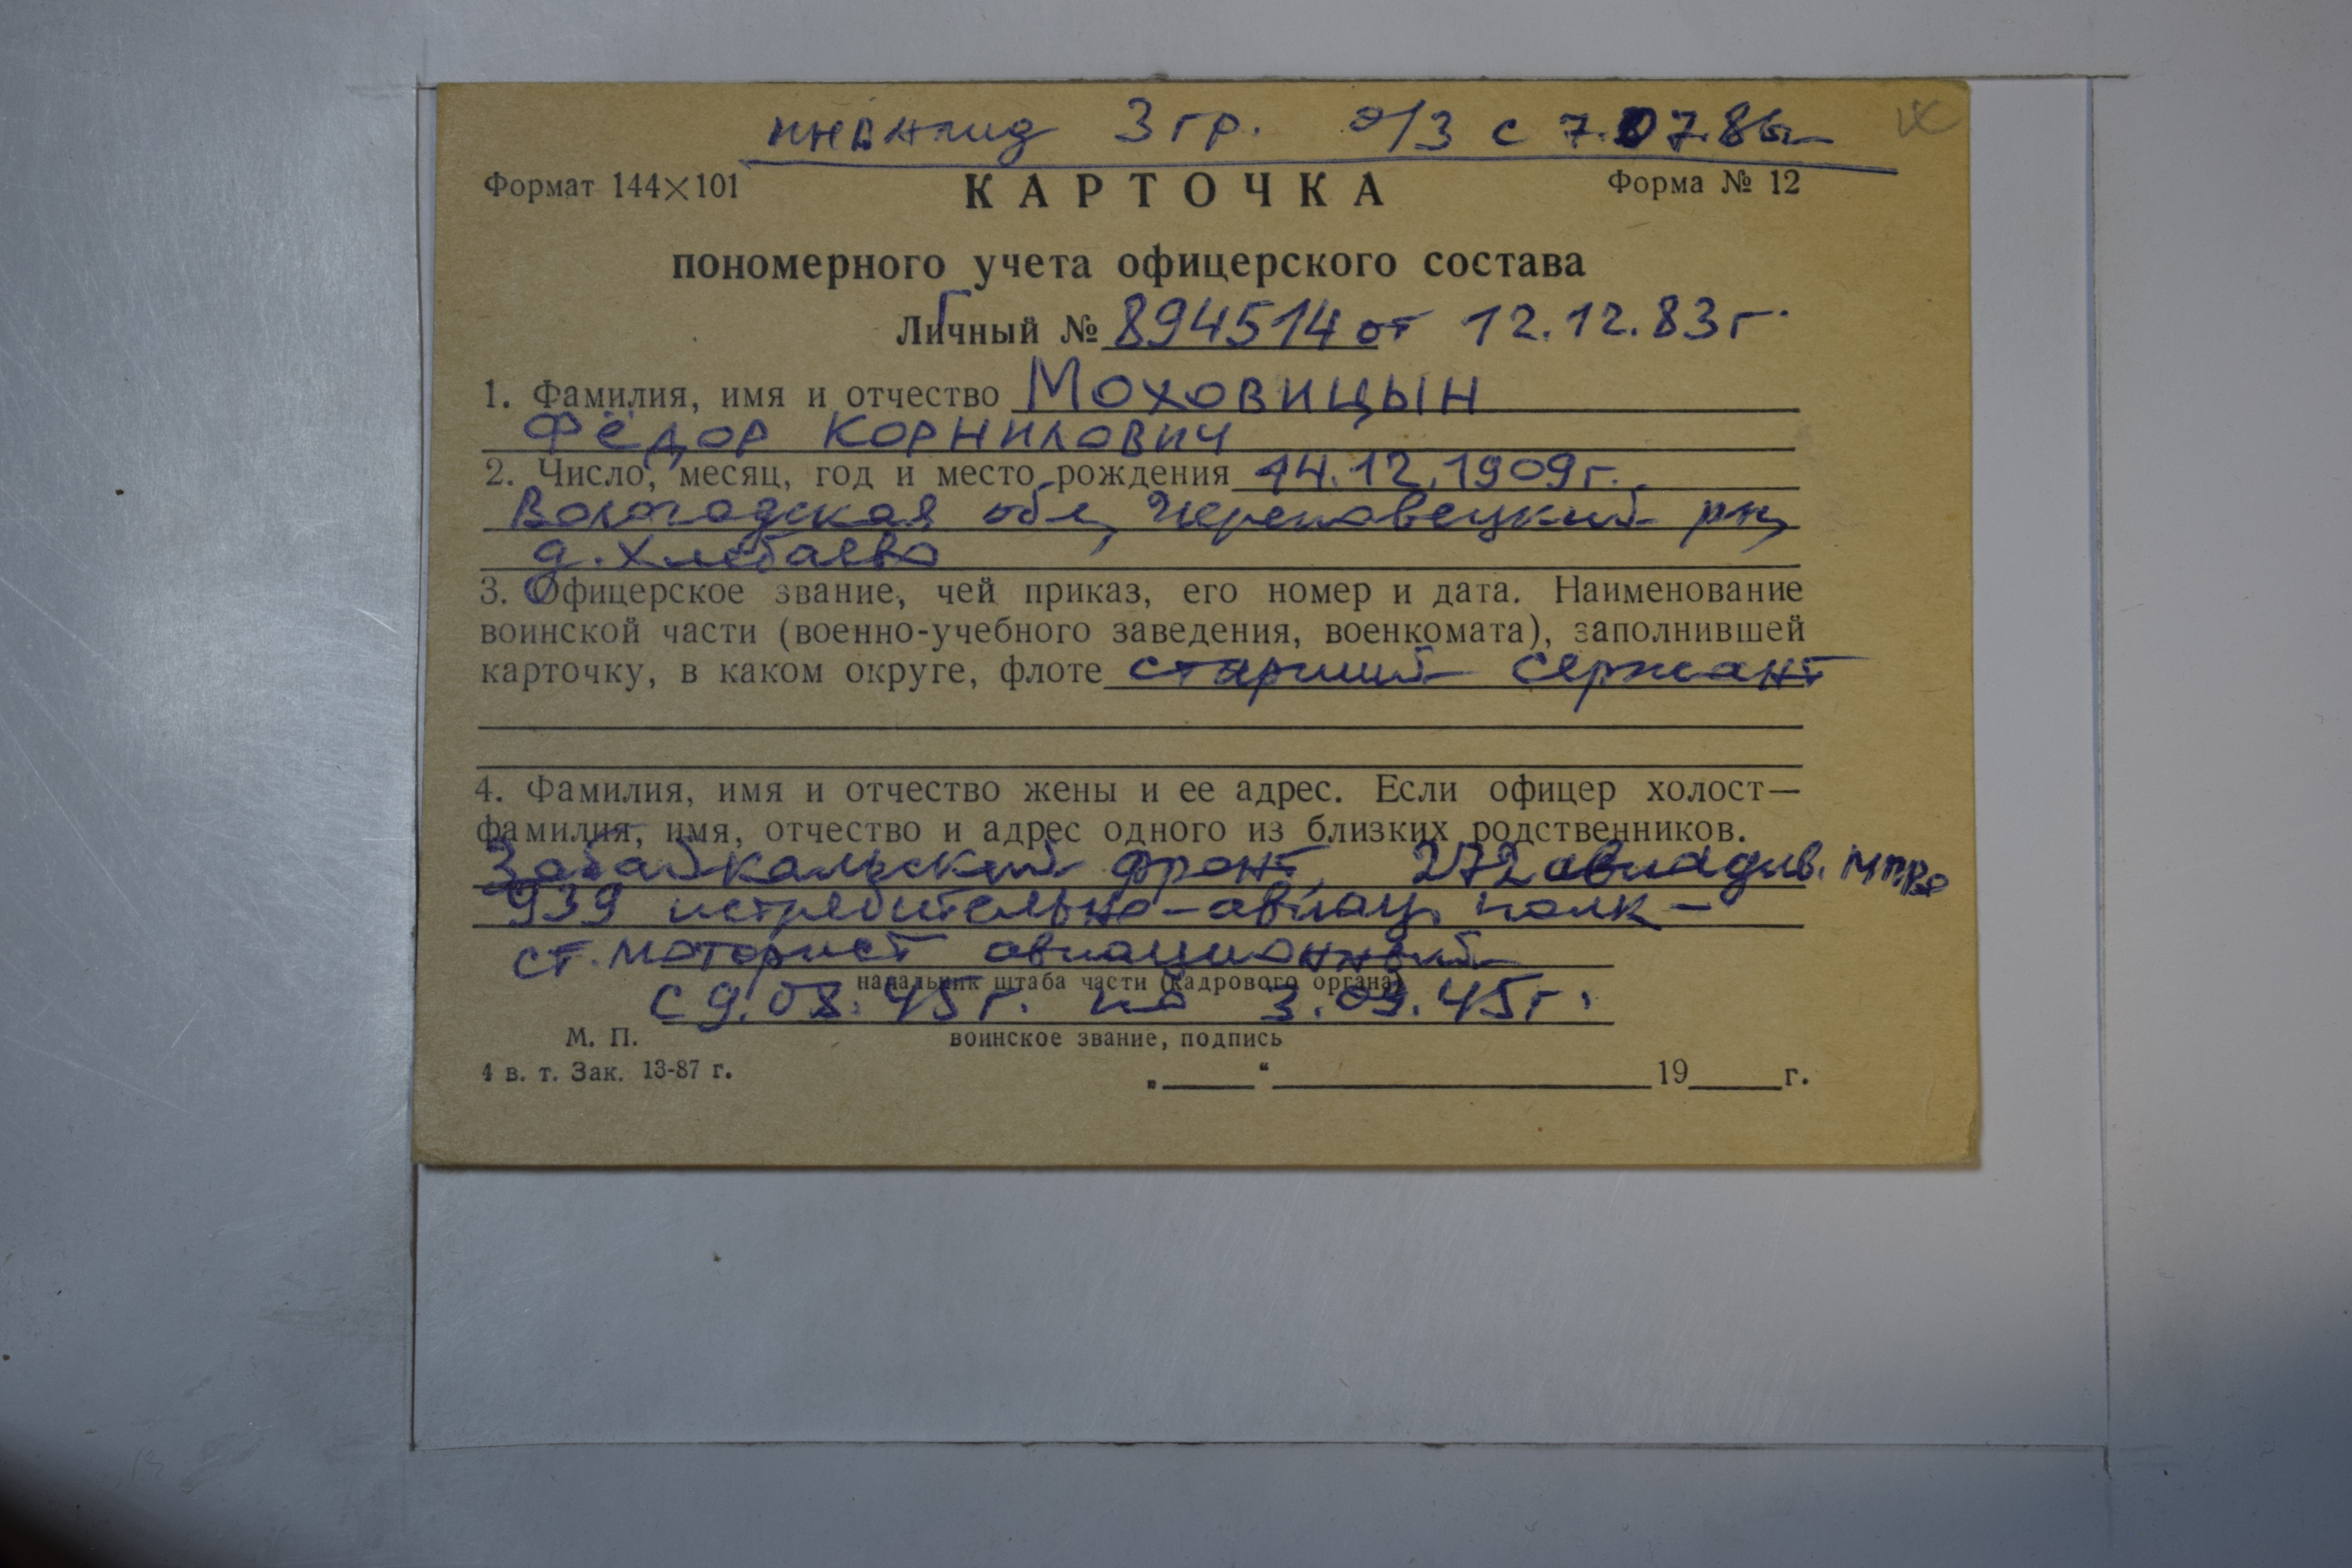 инвалид 3 гр. о/з с 7.07.86г.
Формат 144×101 КАРТОЧКА Форма № 12
пономерного учета офицерского состава
Личный № Г 894514 от 12.12.83г.
1. Фамилия, имя и отчество Моховицын
Фёдор Корнилович
2. Число, месяц, год и место рождения 14.12.1909г.
Вологодская обл, Череповецкий рн,
д. Хлебаево
3. Офицерское звание, чей приказ, его номер и дата. Наименование
воинской части (военно-учебного заведения, военкомата), заполнившей
карточку, в каком округе, флоте старший сержант
4. Фамилия, имя и отчество жены и ее адрес. Если офицер холост—
фамилия, имя, отчество и адрес одного из близких родственников.
Забайкальский фронт, 272 авиадив.
939 истребительно-авиац. полк –
ст. моторист авиационный
начальник штаба части (кадрового органа)
с 9.08.45г. по 3.09.45г.
М. П. воинское звание, подпись
4 в. т. Зак. 13-87 г.
„_____“ _____ 19_____г.